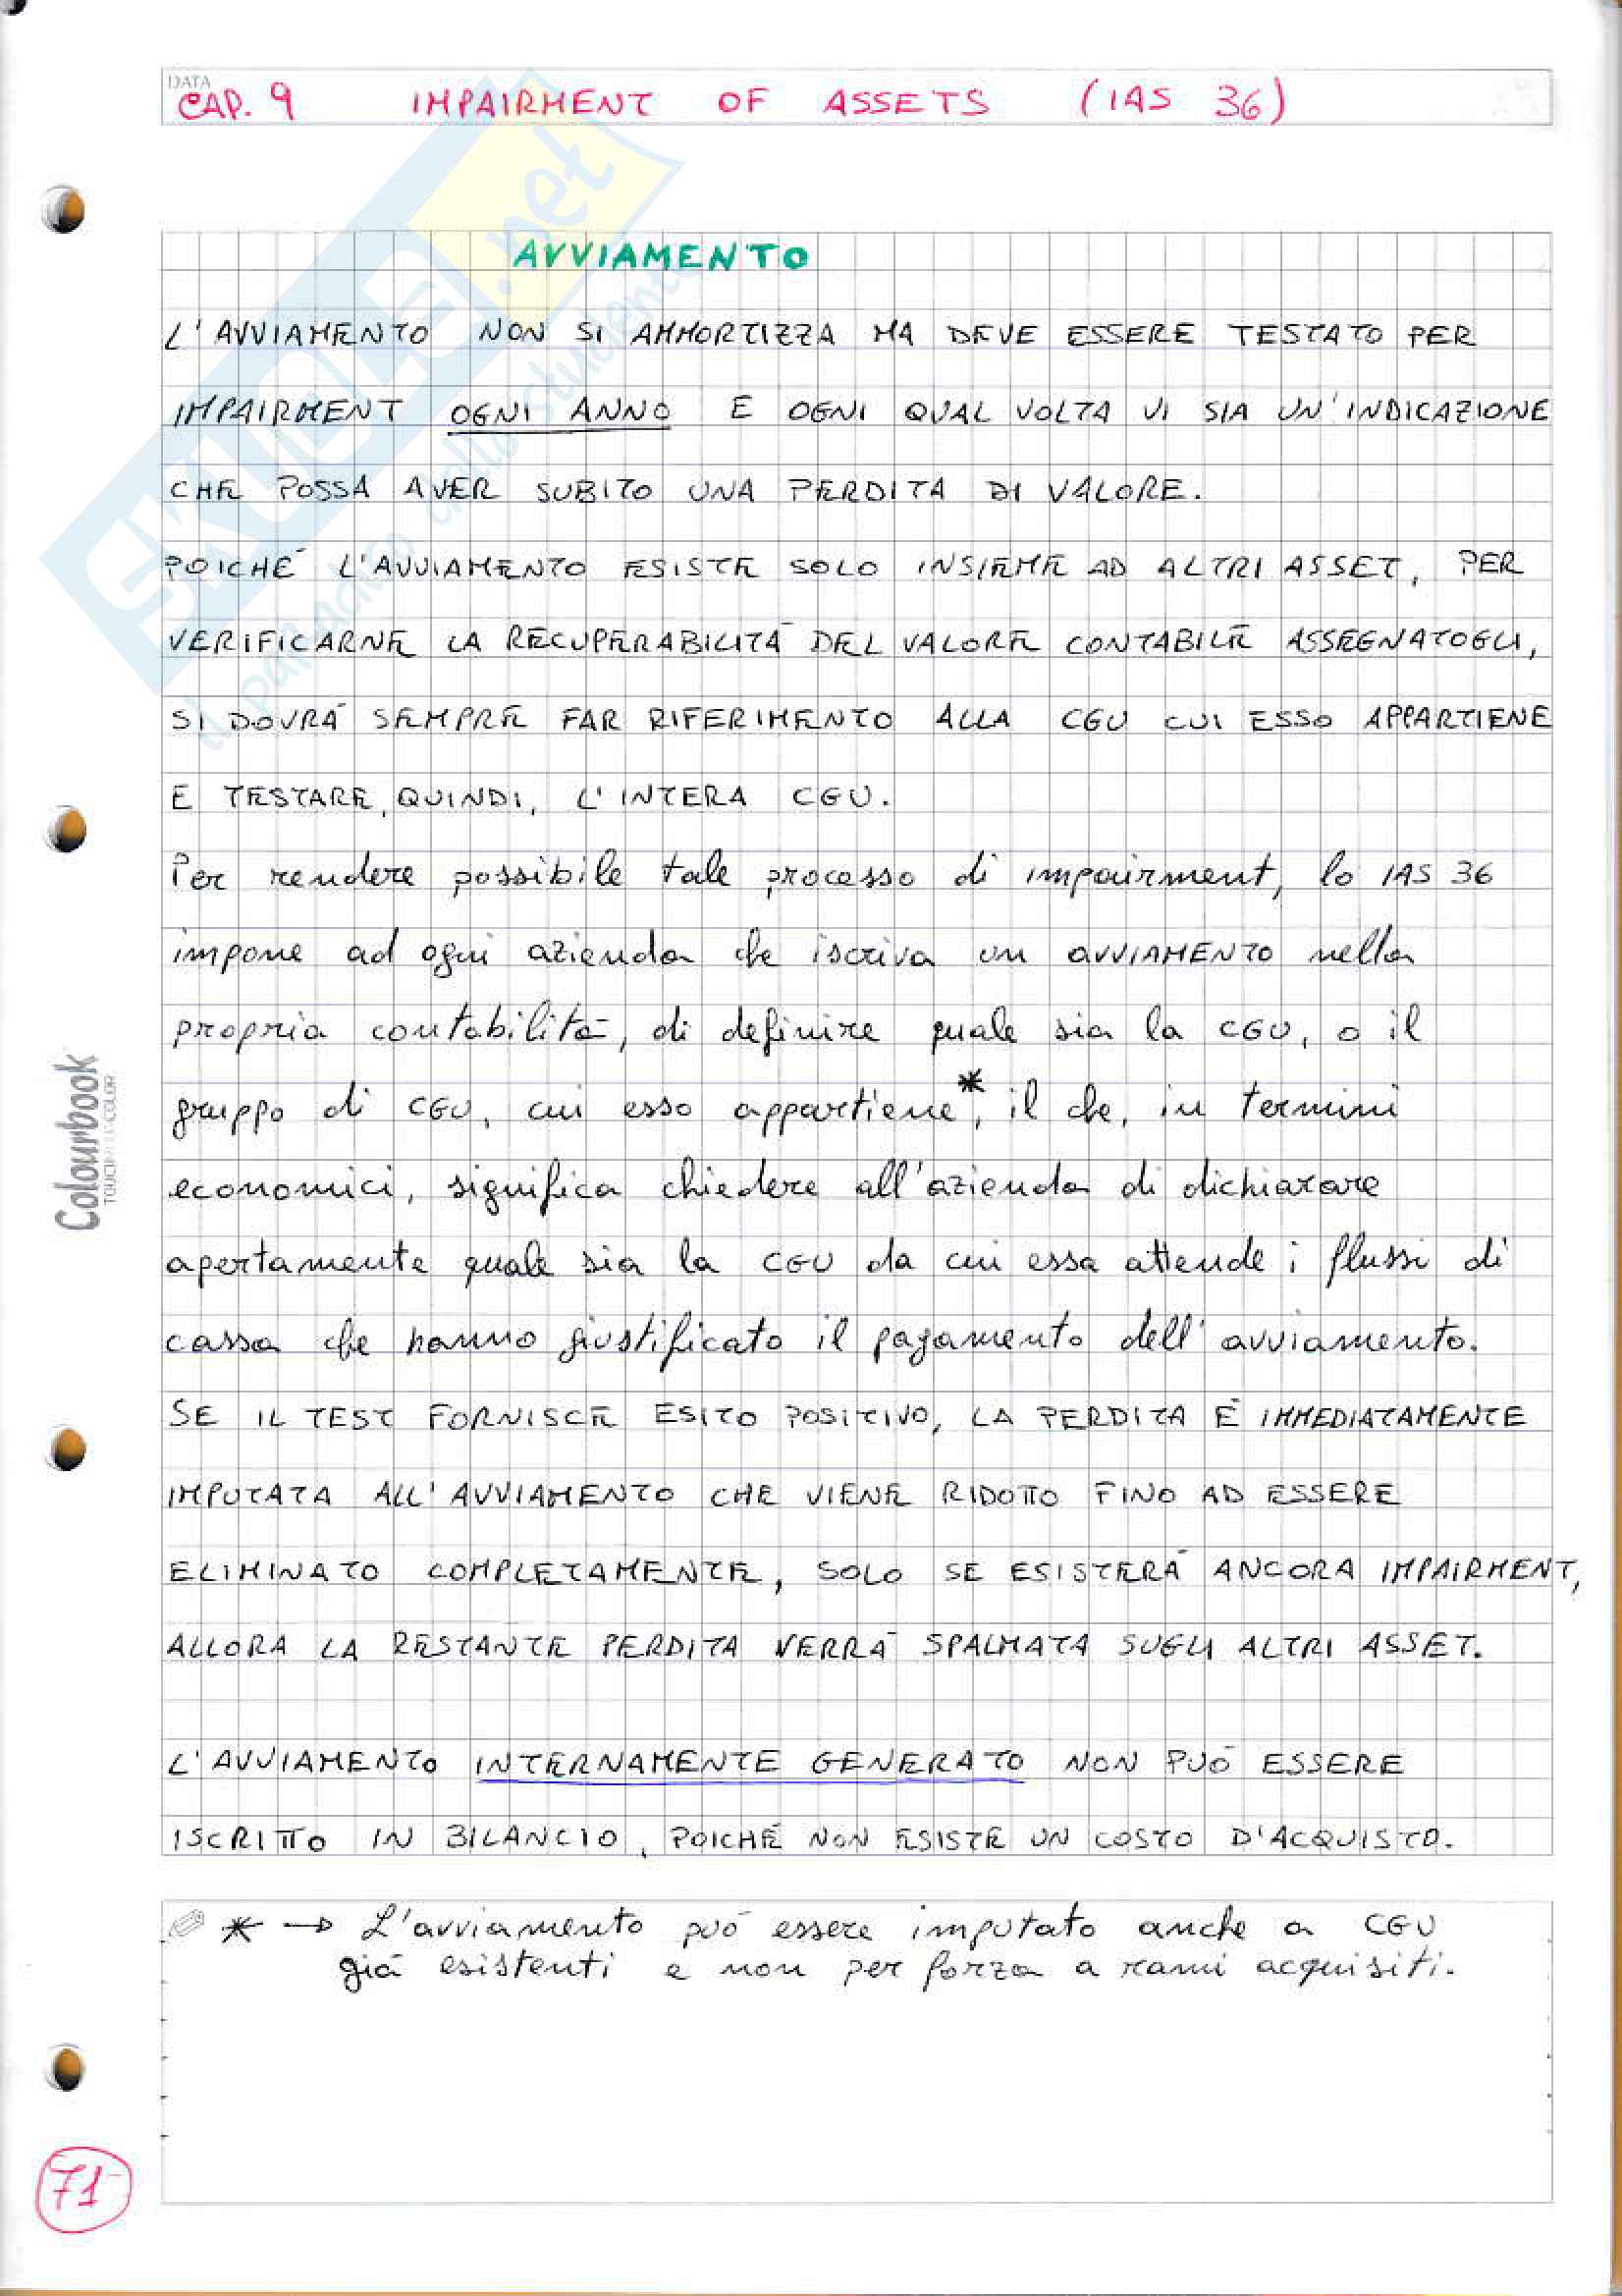 DATA
CAP. 9 IMPAIRMENT OF ASSETS (IAS 36)
AVVIAMENTO
L'AVVIAMENTO NON SI AMMORTIZZA MA DEVE ESSERE TESTATO PER
IMPAIRMENT OGNI ANNO E OGNI QUAL VOLTA VI SIA UN'INDICAZIONE
CHE POSSA AVER SUBITO UNA PERDITA DI VALORE.
POICHÉ L'AVVIAMENTO ESISTE SOLO INSIEME AD ALTRI ASSET, PER
VERIFICARNE LA RECUPERABILITÀ DEL VALORE CONTABILE ASSEGNATOGLI,
SI DOVRÀ SEMPRE FAR RIFERIMENTO ALLA CGU CUI ESSO APPARTIENE
E TESTARE, QUINDI, L'INTERA CGU.
Per rendere possibile tale processo di impairment, lo IAS 36
impone ad ogni azienda che iscriva un AVVIAMENTO nella
propria contabilità, di definire quale sia la CGU, o il
gruppo di CGU, cui esso appartiene*, il che, in termini
economici, significa chiedere all'azienda di dichiarare
apertamente quale sia la CGU da cui essa attende i flussi di
cassa che hanno giustificato il pagamento dell'avviamento.
SE IL TEST FORNISCE ESITO POSITIVO, LA PERDITA È IMMEDIATAMENTE
IMPUTATA ALL'AVVIAMENTO CHE VIENE RIDOTTO FINO AD ESSERE
ELIMINATO COMPLETAMENTE, SOLO SE ESISTERÀ ANCORA IMPAIRMENT,
ALLORA LA RESTANTE PERDITA VERRÀ SPALMATA SUGLI ALTRI ASSET.
L'AVVIAMENTO INTERNAMENTE GENERATO NON PUÒ ESSERE
ISCRITTO IN BILANCIO, POICHÉ NON ESISTE UN COSTO D'ACQUISTO.
* → L'avviamento può essere imputato anche a CGU
già esistenti e non per forza a rami acquisiti.
71
Colourbook
SKUOLA.net
il paradiso dello studente